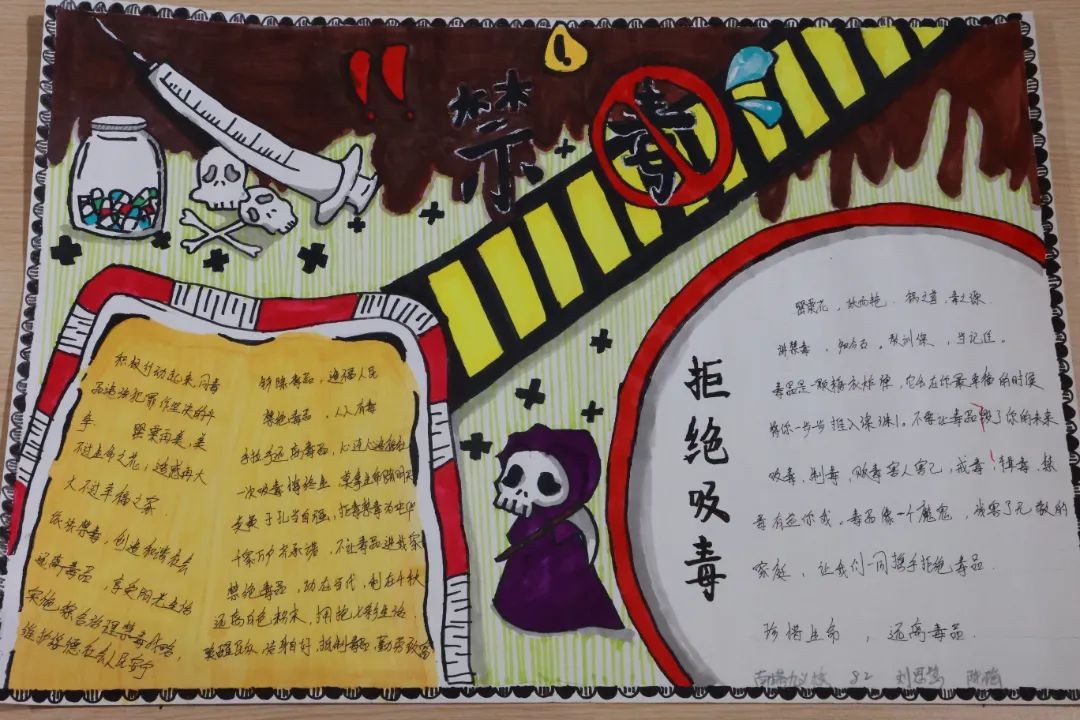 禁毒
积极行动起来，同毒
品违法犯罪作坚决的斗
争
罂粟再美，美
不过生命之花；诱惑再大
大不过幸福之家
依法禁毒，创造和谐社会
远离毒品，享受阳光生活
实施综合治理禁毒战略，
维护 在人民安宁
铲除毒品，造福人民
禁绝毒品，人人有责
手拉手远离毒品，心连心
一次吸毒悔终生 莫
炎黄子孙当自强，拒毒禁毒为中华
千家万户齐承诺，不让毒品进我家
禁绝毒品，功在当代，利在千秋
远离白色粉末，拥抱七彩生活
洁身自好，抵制毒品，勤劳致富
拒绝吸毒
罂粟花，妖而艳，祸之首，毒之源
讲禁毒，知 ，当记住。
毒品是一颗精神炸弹，它会在你最幸福的时候
将你一步步推入深渊。不要让毒品毁了你的未来
吸毒、制毒、贩毒害人害己，戒毒、缉毒、禁
毒有益你我。毒品像一个魔鬼，残害了无数的
家庭，让我们一同携手拒绝毒品
珍惜生命，远离毒品
82 刘思